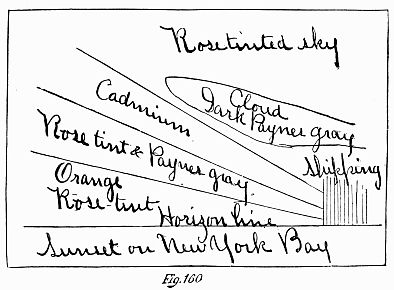 Rose tinted sky
Cadmium
Cloud
Dark Paynes gray
Rose tint & Paynes gray.
Shipping
Orange
Rose-tint
Horizon line
Sunset on New York Bay
Fig. 160